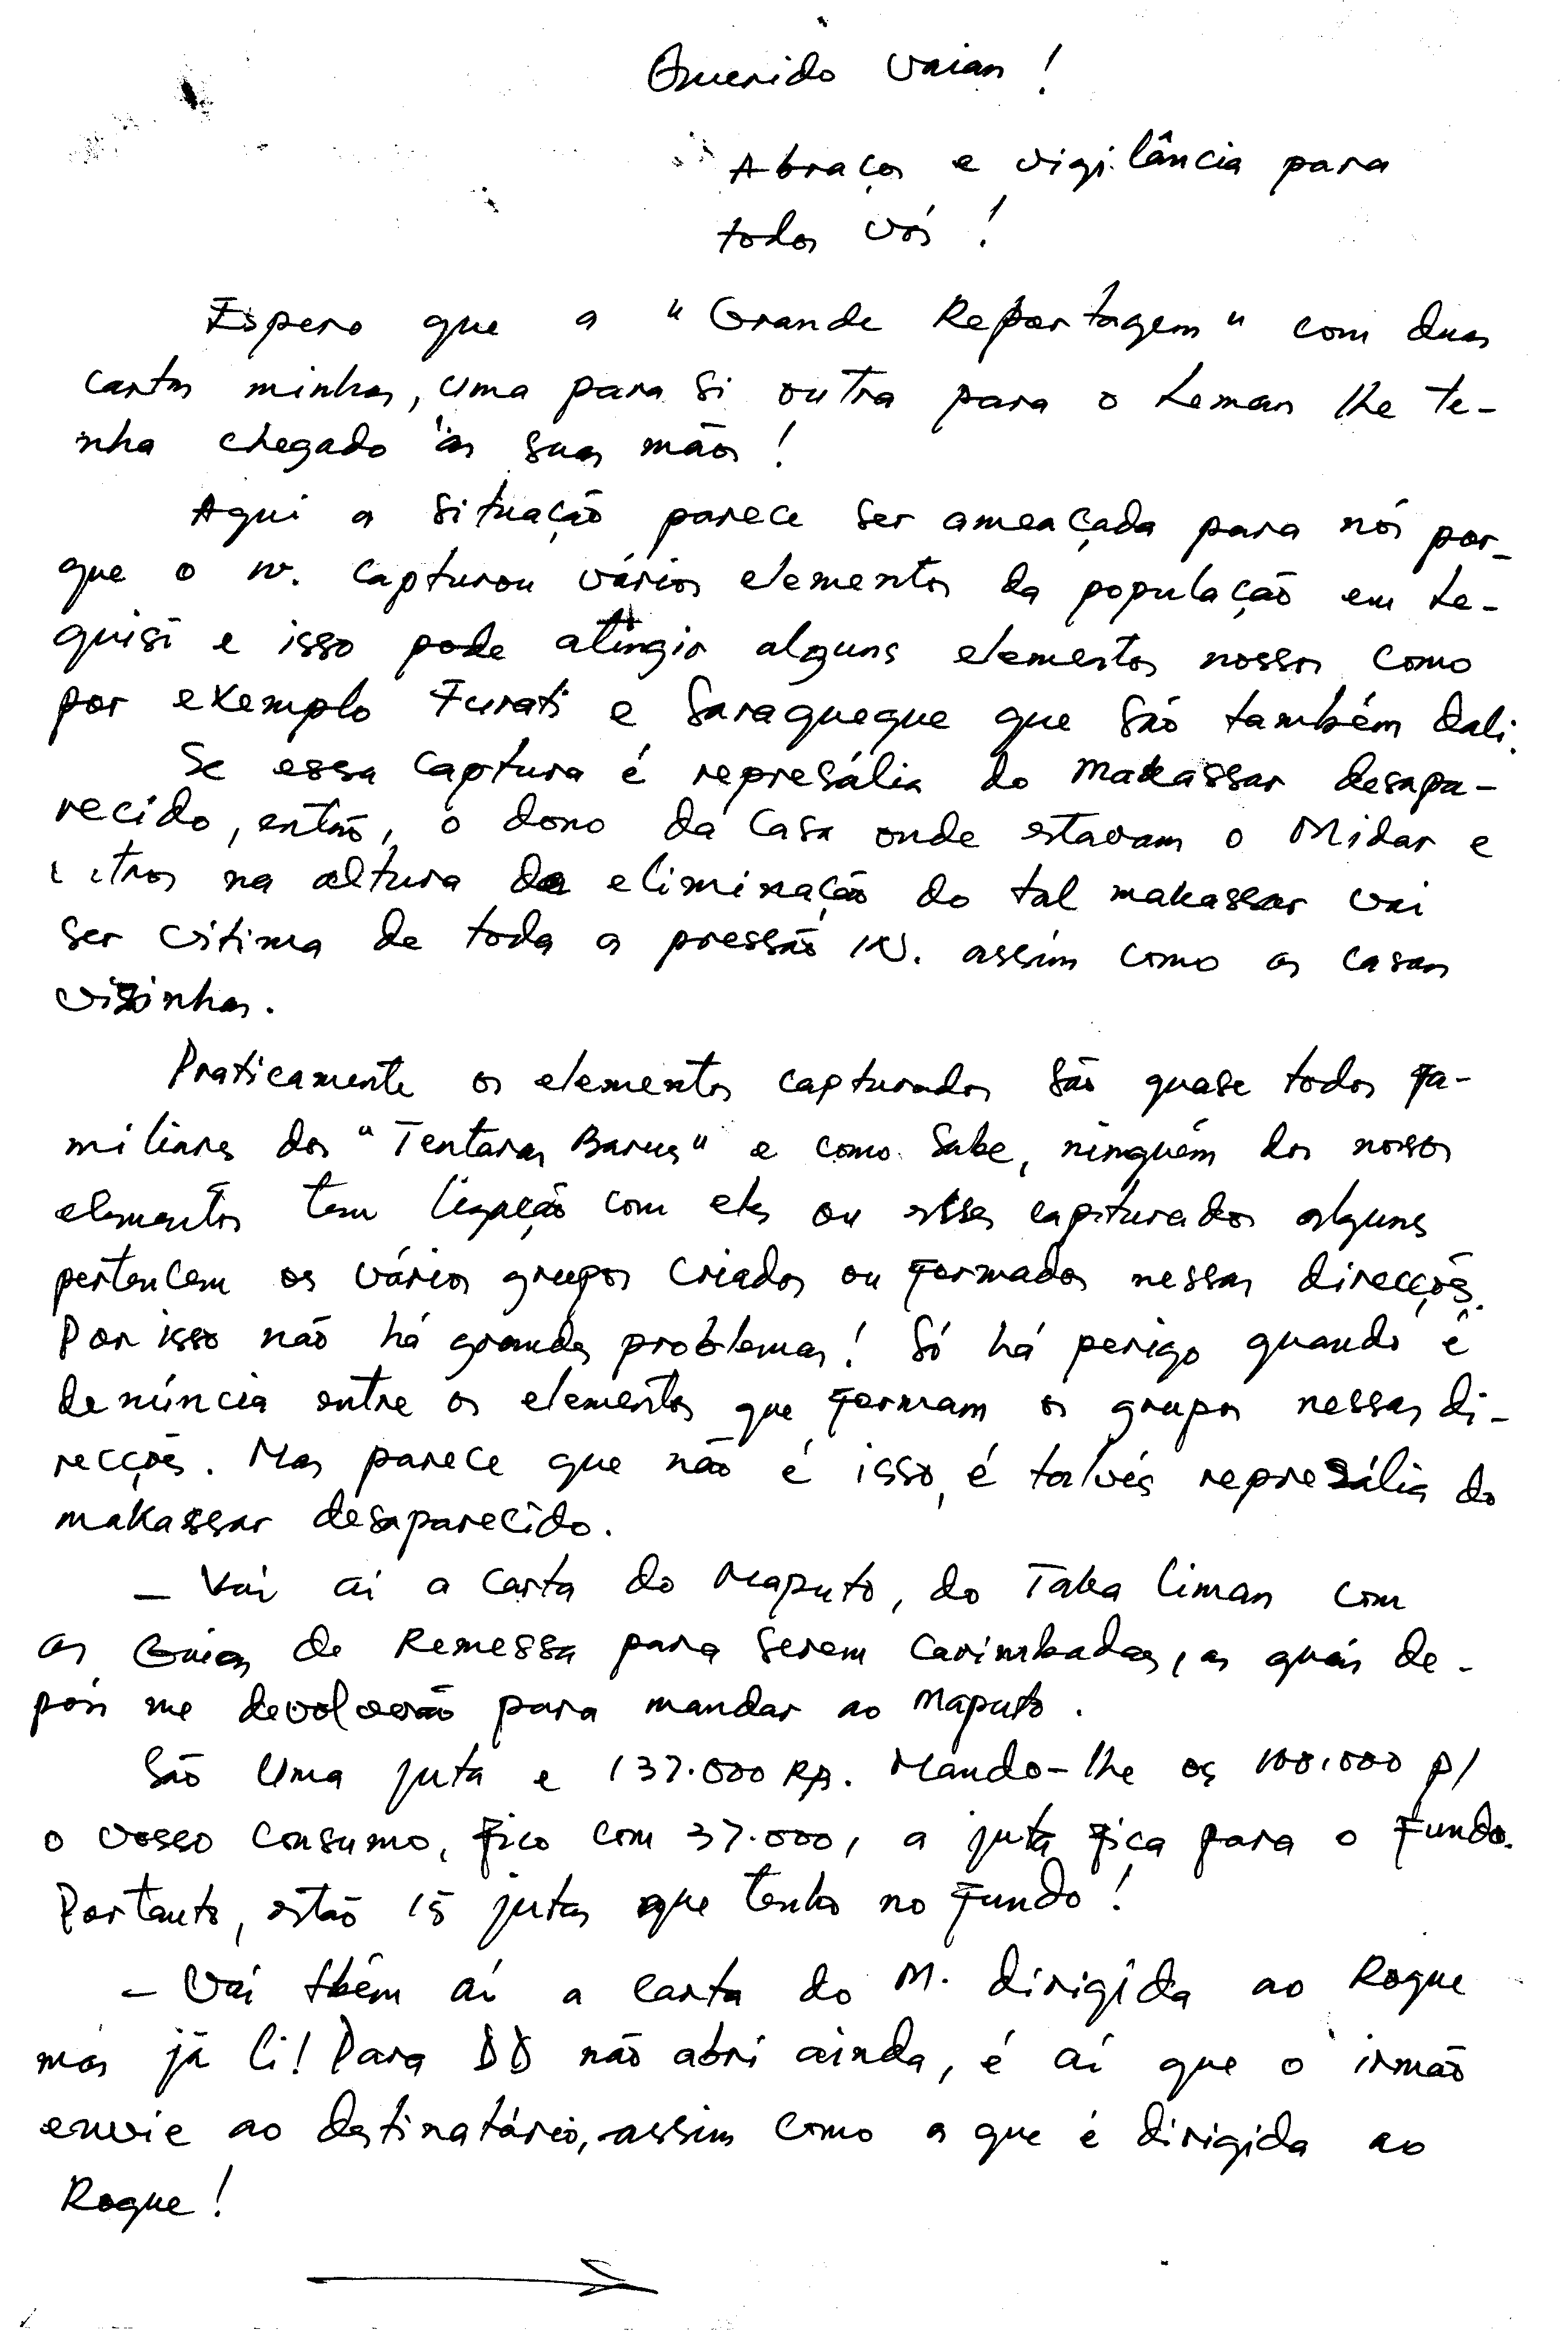 Querido Vaian!
Abraços e vigilância para
todos vós!
Espero que a "Grande Reportagem" com duas
cartas minhas, uma para si outra para o Leman lhe te-
nha chegado às suas mãos!
Aqui a situação parece ser ameaçada para nós por-
que o IN. capturou vários elementos da população em Le-
quisi e isso pode atingir alguns elementos nossos como
por exemplo Furati e Saraqueque que são também dali.
Se essa captura é represália do makassar desapa-
recido, então, o dono da casa onde estavam o Midar e
outros na altura da eliminação do tal makassar vai
ser vítima de toda a pressão IN. assim como as casas
vizinhas.
Praticamente os elementos capturados são quase todos fa-
miliares dos "Tentaras Barus" e como sabe, ninguém dos nossos
elementos tem ligação com eles ou esses capturados alguns
pertencem os vários grupos criados ou formados nessas direcções.
Por isso não há grandes problemas! Só há perigo quando é
denúncia entre os elementos que formam os grupos nessas di-
recções. Mas parece que não é isso, é talvés represália do
makassar desaparecido.
- Vai aí a carta do Maputo, do Taka Liman com
as Guias de Remessa para serem carimbadas, as quais de-
pois me devolverão para mandar ao Maputo.
São uma juta e 137.000 RP. Mando-lhe os 100.000 p/
o vosso consumo, fico com 37.000, a juta fica para o Fundo.
Portanto, estão 15 jutas que tenho no Fundo!
- Vai tbém aí a carta do M. dirigida ao Roque
mas já li! Para DD não abri ainda, é aí que o irmão
envie ao destinatário, assim como a que é dirigida ao
Roque!